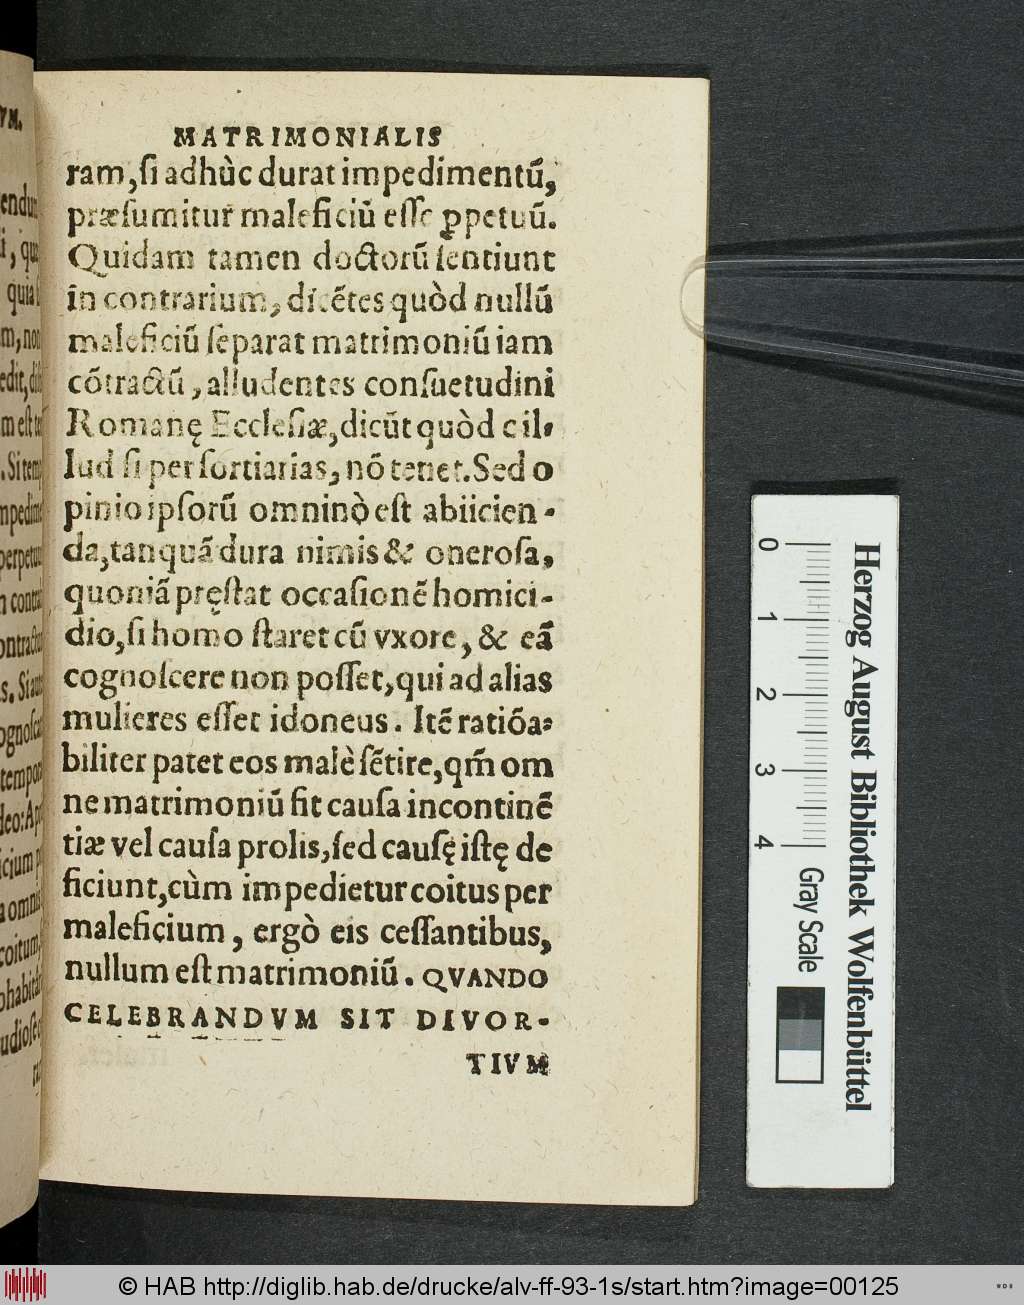 MATRIMONIALIS
ram, ſi adhùc durat impedimentũ,
præſumitur maleficiũ eſſe ꝑpetuũ.
Quidam tamen doctorũ ſentiunt
in contrarium, dicẽtes quòd nullũ
maleficiũ ſeparat matrimoniũ iam
cõtractũ, alludentes conſuetudini
Romanę Eccleſiæ, dicũt quòd c il-
lud ſi per ſortiarias, nõ tenet. Sed o
pinio ipſorũ omninò eſt abiicien-
da, tanquã dura nimis & oneroſa,
quoniã pręſtat occaſionẽ homici-
dio, ſi homo ſtaret cũ vxore, & eã
cognoſcere non poſſet, qui ad alias
mulieres eſſet idoneus. Itẽ ratiõa-
biliter patet eos malè ſẽtire, qm̃ om
ne matrimoniũ fit cauſa incontinẽ
tiæ vel cauſa prolis, ſed cauſę iſtę de
ficiunt, cùm impedietur coitus per
maleficium, ergò eis ceſſantibus,
nullum eſt matrimoniũ. QVANDO
CELEBRANDVM SIT DIVOR-
TIVM
VM.
0 1 2 3 4
Herzog August Bibliothek Wolfenbüttel
Gray Scale
© HAB http://diglib.hab.de/drucke/alv-ff-93-1s/start.htm?image=00125